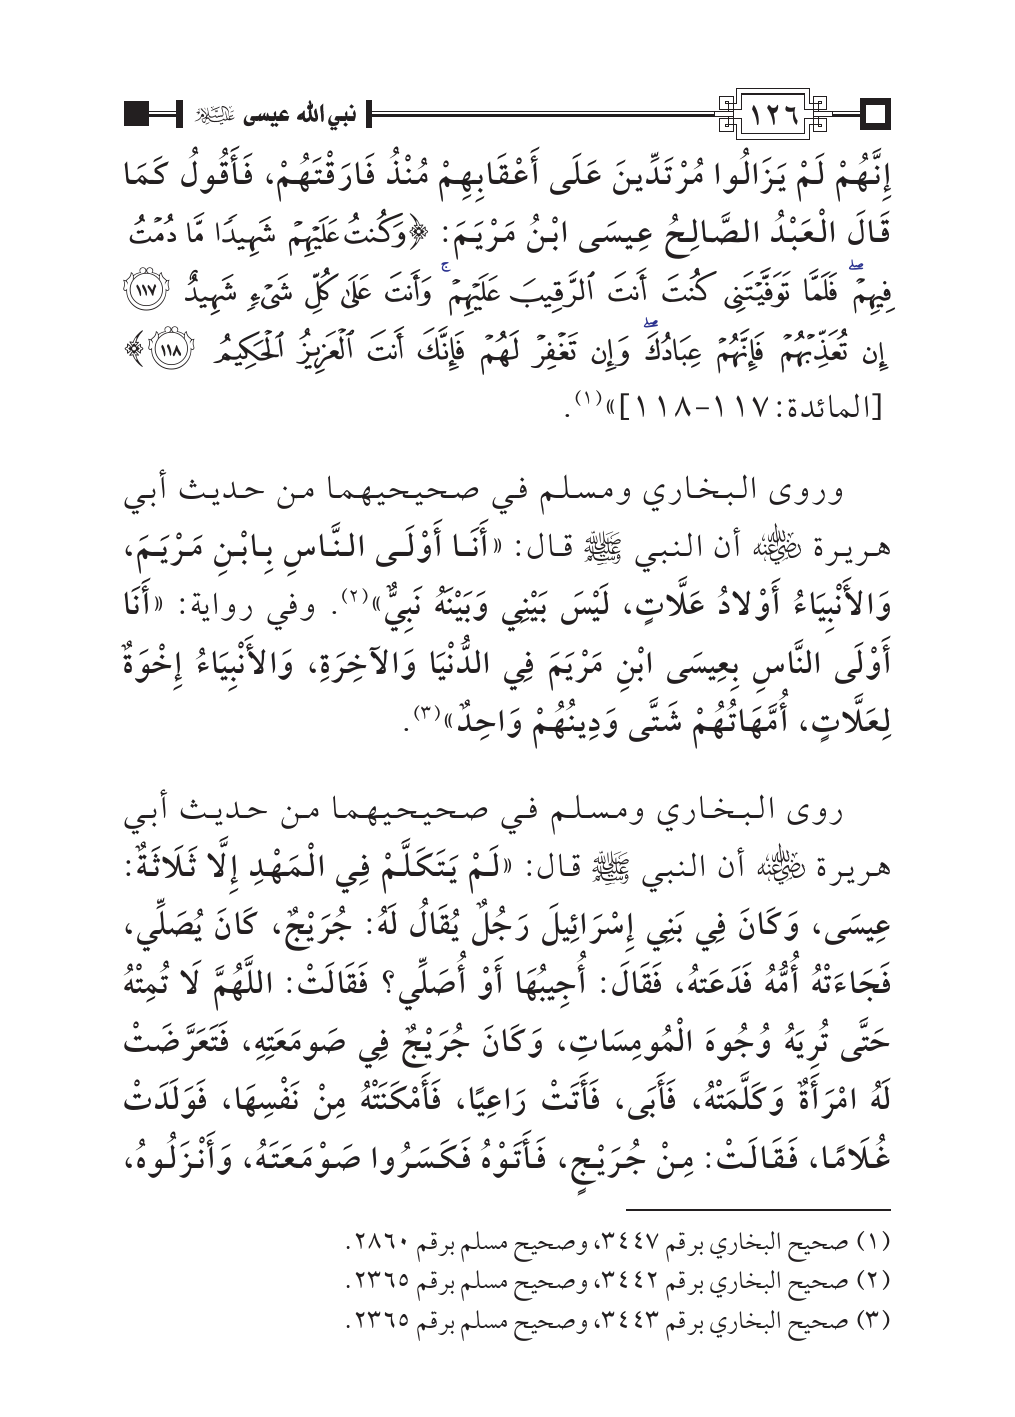 ١٢٦
نبي الله عيسى عليه السلام
إِنَّهُمْ لَمْ يَزَالُوا مُرْتَدِّينَ عَلَى أَعْقَابِهِمْ مُنْذُ فَارَقْتَهُمْ، فَأَقُولُ كَمَا
قَالَ الْعَبْدُ الصَّالِحُ عِيسَى ابْنُ مَرْيَمَ: ﴿وَكُنتُ عَلَيْهِمْ شَهِيدًا مَّا دُمْتُ
فِيهِمْ ۖ فَلَمَّا تَوَفَّيْتَنِى كُنتَ أَنتَ ٱلرَّقِيبَ عَلَيْهِمْ ۚ وَأَنتَ عَلَىٰ كُلِّ شَىْءٍ شَهِيدٌ ١١٧
إِن تُعَذِّبْهُمْ فَإِنَّهُمْ عِبَادُكَ ۖ وَإِن تَغْفِرْ لَهُمْ فَإِنَّكَ أَنتَ ٱلْعَزِيزُ ٱلْحَكِيمُ ١١٨﴾
[المائدة: ١١٧-١١٨]»(١).
وروى البخاري ومسلم في صحيحيهما من حديث أبي
هريرة رضي الله عنه أن النبي ﷺ قال: «أَنَا أَوْلَى النَّاسِ بِابْنِ مَرْيَمَ،
وَالأَنْبِيَاءُ أَوْلادُ عَلَّاتٍ، لَيْسَ بَيْنِي وَبَيْنَهُ نَبِيٌّ»(٢). وفي رواية: «أَنَا
أَوْلَى النَّاسِ بِعِيسَى ابْنِ مَرْيَمَ فِي الدُّنْيَا وَالآخِرَةِ، وَالأَنْبِيَاءُ إِخْوَةٌ
لِعَلَّاتٍ، أُمَّهَاتُهُمْ شَتَّى وَدِينُهُمْ وَاحِدٌ»(٣).
روى البخاري ومسلم في صحيحيهما من حديث أبي
هريرة رضي الله عنه أن النبي ﷺ قال: «لَمْ يَتَكَلَّمْ فِي الْمَهْدِ إِلَّا ثَلَاثَةٌ:
عِيسَى، وَكَانَ فِي بَنِي إِسْرَائِيلَ رَجُلٌ يُقَالُ لَهُ: جُرَيْجٌ، كَانَ يُصَلِّي،
فَجَاءَتْهُ أُمُّهُ فَدَعَتهُ، فَقَالَ: أُجِيبُهَا أَوْ أُصَلِّي؟ فَقَالَتْ: اللَّهُمَّ لَا تُمِتْهُ
حَتَّى تُرِيَهُ وُجُوهَ الْمُومِسَاتِ، وَكَانَ جُرَيْجٌ فِي صَومَعَتِهِ، فَتَعَرَّضَتْ
لَهُ امْرَأَةٌ وَكَلَّمَتْهُ، فَأَبَى، فَأَتَتْ رَاعِيًا، فَأَمْكَنَتْهُ مِنْ نَفْسِهَا، فَوَلَدَتْ
غُلَامًا، فَقَالَتْ: مِنْ جُرَيْجٍ، فَأَتَوْهُ فَكَسَرُوا صَوْمَعَتَهُ، وَأَنْزَلُوهُ،
(١) صحيح البخاري برقم ٣٤٤٧، وصحيح مسلم برقم ٢٨٦٠.
(٢) صحيح البخاري برقم ٣٤٤٢، وصحيح مسلم برقم ٢٣٦٥.
(٣) صحيح البخاري برقم ٣٤٤٣، وصحيح مسلم برقم ٢٣٦٥.